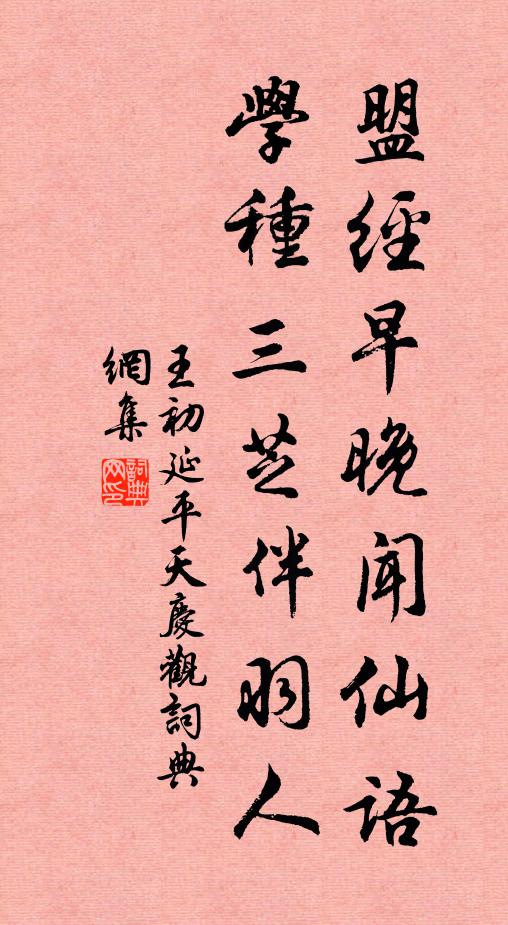 盟經早晚聞仙語
學種三芝伴羽人
王初延平天慶觀詞典
網集
詞典網印